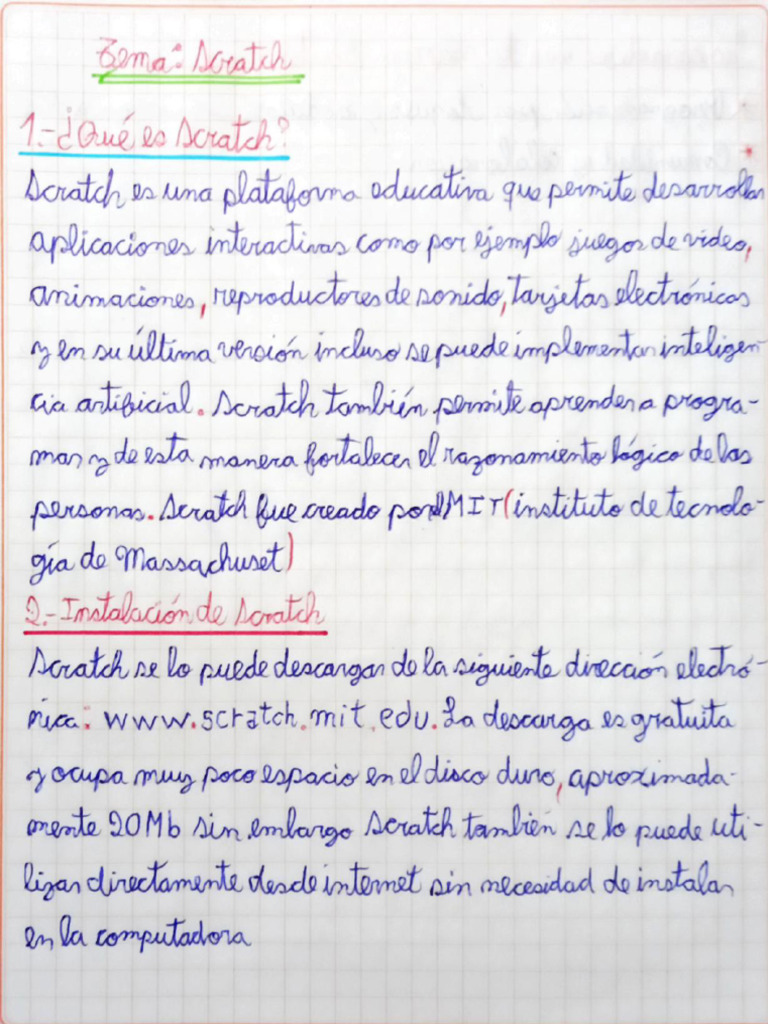 Tema: Scratch
1.-¿Qué es Scratch?
Scratch es una plataforma educativa que permite desarrollar
aplicaciones interactivas como por ejemplo juegos de video,
animaciones, reproductores de sonido, tarjetas electrónicas
y en su última versión incluso se puede implementar inteligen
cia artificial. Scratch también permite aprender a progra-
mar y de esta manera fortalecer el razonamiento lógico de las
personas. Scratch fue creado por el MIT (instituto de tecnolo-
gía de Massachuset)
2.-Instalación de Scratch
Scratch se lo puede descargar de la siguiente dirección electró-
nica: www.scratch.mit.edu. La descarga es gratuita
y ocupa muy poco espacio en el disco duro, aproximada-
mente 20Mb sin embargo Scratch también se lo puede uti-
lizar directamente desde internet sin necesidad de instalar
en la computadora